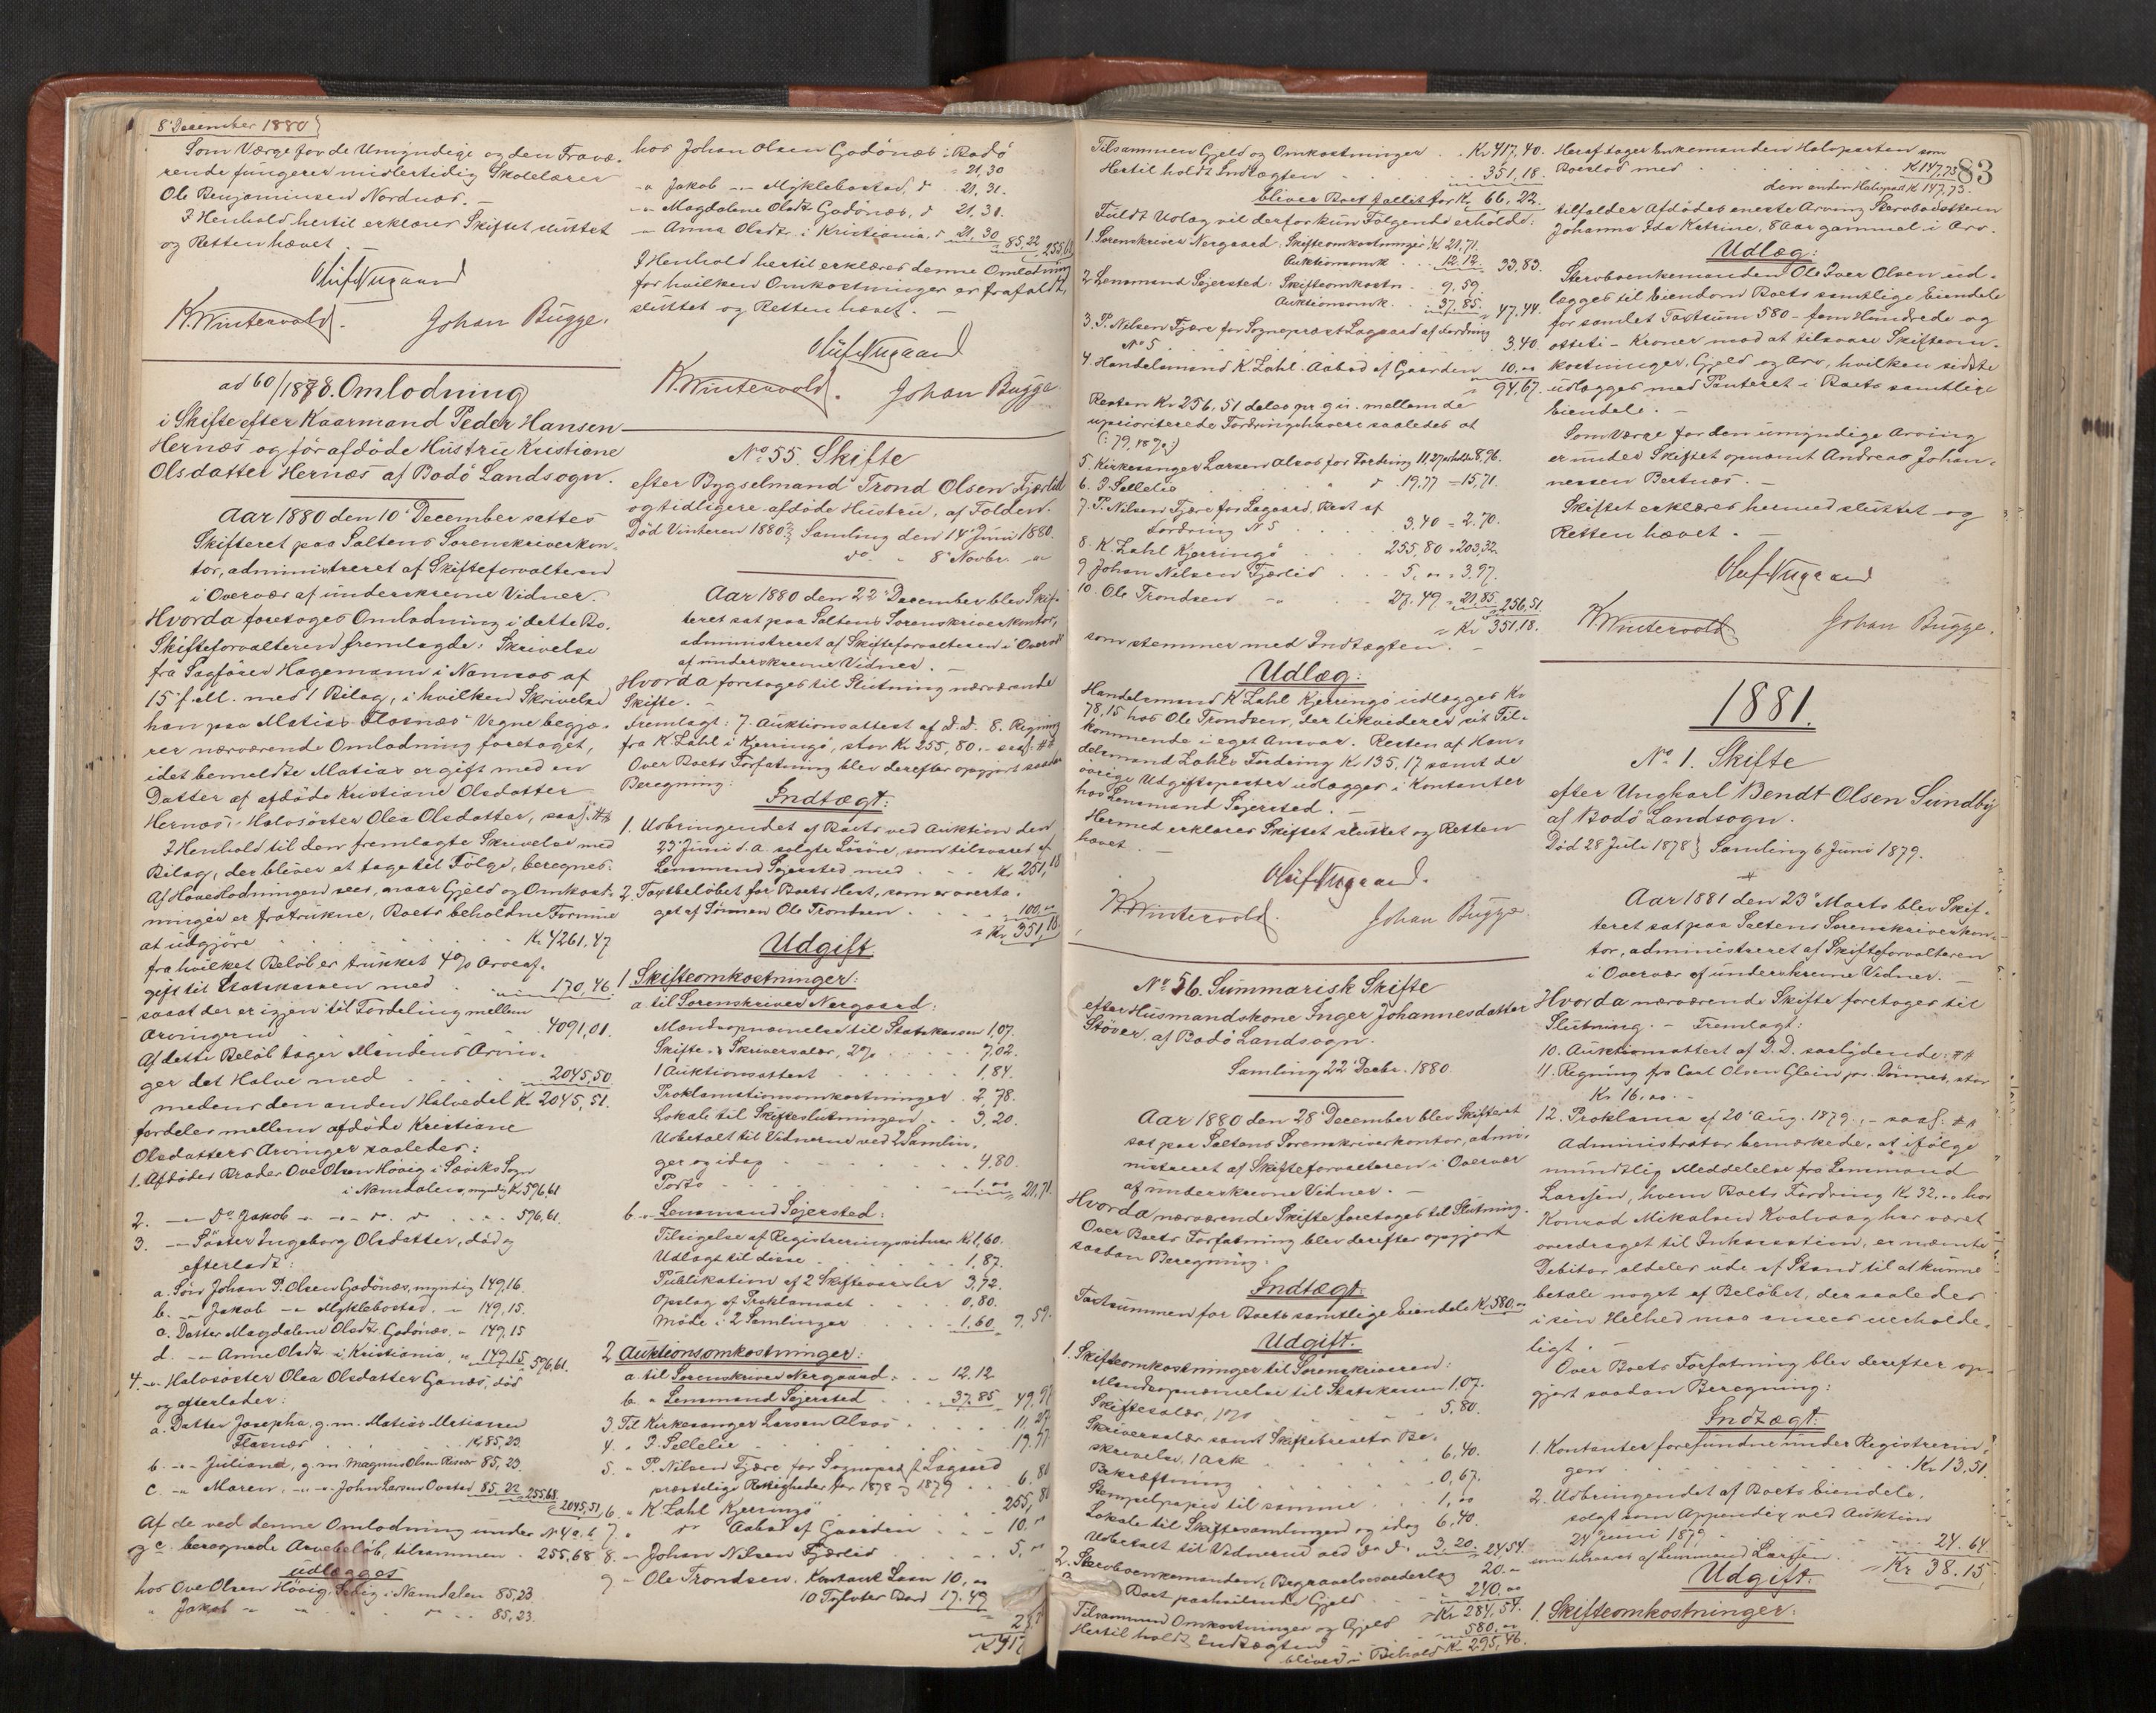 8' December 1880
Som Værge for de Umyndige og den Fravæ-
rende fungerer midlertidig Skolelærer
Ole Benjaminsen Nordnæs. -
I Henhold hertil erklæres Skiftet sluttet
og Retten hævet
Oluf Nrgaard
K. Wintervold. Johan Bugge.
ad 60/1878. Omlodning
i Skifte efter Kaarmand Peder Hansen
Hernæs og før afdöde Hustru Kristiane
Olsdatter Hernæs af Bodö Landsogn.
Aar 1880 den 10' December sattes
Skifteret paa Saltens Sorenskriverkon-
tor, administreret af Skifteforvalteren
i Overvær af underskrevne Vidner.
Hvorda foretoges Omlodning i dette Bo.
Skifteforvalteren fremlagde: Skrivelse
fra Sagförer Hagemann i Namsos af
15' f. M. med 1 Bilag, i hvilken Skrivelse
han paa Matias Flasnæs' Vegne begjæ-
rer nærværende Omlodning foretaget,
idet bemeldte Matias er gift med en
Datter af afdöde Kristiane Olsdatter
Hernæs' Halvsöster Olea Olsdatter, saal. ##
I Henhold til den fremlagte Skrivelse med
Bilag, der bliver at tage til Fölge, beregnes.
Af Hovedlodningen sees, naar Gjeld og Omkost-
ninger er fratrukne, Boets beholdne Formue
at udgjöre . . . Kr 4261,47
fra hvilket Belöb er trukket 4% Arveaf-
gift til Statskassen med . 170,46.
saaat der er igjen til Fordeling mellem
Arvingerne . . . 4091,01.
Af dette Belöb tager Mandens Arvin-
ger det Halve med . . . 2045,50
medens den anden Halvedel Kr 2045,51.
fordeles mellem afdöde Kristiane
Olsdatters Arvinger saaledes:
1. Afdödes Broder Ove Olsen Hövig i Sæviks Sogn
i Namdalen, myndig Kr 596,61
2. — Do Jakob - - - 596,61.
3. — Söster Ingeborg Olsdatter, död og
efterladt:
a. Sön Johan P. Olsen Godönæs, myndig 149,16.
b. — Jakob — Myklebostad. — 149,15.
c. Datter Magdalene Olsdtr. Godönæs. " 149,15
d. — Anne Olsdtr i Kristiania, " 149,15 596,61.
4. — Halvsöster Olea Olsdatter Ganæs, död
og efterlader:
a. Datter Josepha, g. m. Matias Matiassen
Flasnæs . . . Kr 85,23.
b. — Juliane, g. m. Magnus Olsen 85,23.
c. — Maren, — John Larsen 85,22 255,68.
2045,51
Af de ved denne Omlodning under No 4 a. b
og c. beregnede Arvebelöb, tilsammen . 255,68
udlægges
hos Ove Olsen Hövig, i Namdalen 85,23
" Jakob " " " 85,23.
hos Johan Olsen Godönæs i Bodö
" 21,30
" Jakob — Myklebostad, d. . 21,31.
— Magdalene Olsdtr Godönæs, d 21,31.
— Anna Olsdtr i Kristiania, " 21,30 85,22
255,68
I Henhold hertil erklæres denne Omlodning
for hvilken Omkostninger er frafaldt,
sluttet og Retten hævet. -
Oluf Nrgaard
K. Wintervold. Johan Bugge
No 55. Skifte
efter Bygselmand Trond Olsen Fjærlid
og tidligere afdöde Hustru, af Folden.
Död Vinteren 1880. Samling den 14' Juni 1880.
do. " 8' Novbr. "
Aar 1880 den 22' December blev Skif-
teret sat paa Saltens Sorenskriverkontor,
administreret af Skifteforvalteren i Overvær
af underskrevne Vidner. -
Hvorda foretoges til Slutning nærværende
Skifte. -
Fremlagt: 7. Auktionsattest af D. D. 8. Regning
fra K. Zahl i Kjerringö, stor Kr 255,80. - saal: ##
Over Boets Forfatning blev derefter opgjort saadan
Beregning:
Indtægt:
1. Udbringendet af Boets ved Auktion den
23' Juni d. A. solgte Lösöre, som tilsvares af
Lensmand Sejersted med . . . Kr 251,18
2. Taxtbelöbet for Boets Hest, som er overta-
get af Sönnen Ole Trondsen . . . 100,"
" Kr. 351,18.
Udgift
1 Skifteomkostninger:
a til Sorenskriver Nergaard:
Mandsopnævnelse til Statskassen 1,07.
Skifte- & Skriversalær, 2% . . . 7,02.
1 Auktionsattest . . . 1,84.
Proklamationsomkostninger . 2,78.
Lokale til Skifteslutningen . . 3,20.
Udbetalt til Vidnerne ved 2 Samlin-
ger og idag . . . 4,80.
Porto . . . 1,00 21,71.
b. " Lensmand Sejersted:
Tilsigelse af Registreringsvidner Kr 1,60.
Udlagt til disse . . . 1,87.
Publikation af 2 Skiftevarsler 3,72.
Opslag af Proklamaet . . . 0,80.
Möde i 2 Samlinger . . . 1,60 9,59.
2 Auktionsomkostninger:
a til Sorenskriver Nergaard . . 12.12
b. " Lensmand Sejersted . . 37,85 49,97
3. Til Kirkesanger Larsen Alsos . . . 11,27
4. " P. Sellelie . . . 19.77
5. " P. Nilsen Fjære for Sogneprest Lagaard
prestelige Rettigheder for 1878 og 1879 . . 6.80
6. " K. Zahl Kjerringö . . . 255,80
7. " do Aabod af Gaarden . . . 10."
8. — Johan Nilsen Fjærlid . . . 5,"
9 — Ole Trondsen. Kontant Laan 10,"
10 Tylvter Bord 17.49
Tilsammen Gjeld og Omkostninger . . Kr 417,40.
Hertil holdt Indtægten . . . 351,18.
bliver Boet fallit for Kr 66,22.
Fuldt Udlæg vil derfor kun Fölgende erholde:
1. Sorenskriver Nergaard. Skifteomkostninger Kr 21,71.
Auktionsomk . . 12.12. 33,83.
2 Lensmand Sejersted. Skifteomkostn . 9,59.
Auktionsomk. . 37.85. 47,44.
3. P. Nilsen Fjære for Sogneprest Lagaard af Fordring
No 5 . . . 3,40.
4. Handelsmand K. Zahl. Aabod af Gaarden 10,"
" 94,67.
Resten Kr 256,51 deles pr. q. v. mellem de
uprioriterede Fordringshavere saaledes at
(: 79,18% :)
5. Kirkesanger Larsen Alsos for Fordring 11,27 erholder 8,96.
6. P. Sellelie . . . d. 19.77 = 15,71.
7. P. Nilsen Fjære for Lagaard, Rest af
Fordring No 5 . . . 3.40 = 2.70.
8. K. Zahl Kjerringö . . . 255,80 = 203,32.
9 Johan Nilsen Fjærlid . . . 5," = 3.97.
10. Ole Trondsen — . . . 27.49 = 21,85 256,51.
" Kr 351,18.
som stemmer med Indtægten. -
Udlæg:
Handelsmand K. Zahl Kjerringö udlægges Kr
78,15 hos Ole Trondsen, der likviderer sit Til-
kommende i eget Ansvar. Resten af Han-
delsmand Zahls Fordring Kr 135,17 samt de
övrige Udgiftsposter udlægges i Kontanter
hos Lensmand Sejersted. -
Hermed erklæres Skiftet sluttet og Retten
hævet. -
Oluf Nrgaard.
K. Wintervold. Johan Bugge
No 56. Summarisk Skifte
efter Husmandskone Inger Johannesdatter
Stöver, af Bodö Landsogn.
Samling 22' Decbr. 1880
Aar 1880 den 28' December blev Skifteret
sat paa Saltens Sorenskriverkontor, admi-
nistreret af Skifteforvalteren i Overvær
af underskrevne Vidner. -
Hvorda nærværende Skifte foretoges til Slutning.
Over Boets Forfatning blev derefter opgjort
saadan Beregning:
Indtægt:
Taxtsummen for Boets samtlige Eiendele Kr 580."
Udgift:
1. Skifteomkostninger til Sorenskriveren:
Mandsopnævnelse til Statskassen 1,07.
Skiftesalær, 1% . . . 5,80.
Skriversalær samt Skiftebrevets Be-
skrivelse, 1 Ark . . . 6,40.
Bekræftning . . . 0,67.
Stempelpapir til samme . . . 1,"
Lokale til Skiftesamlingen og idag 6,40.
Udbetalt til Vidnerne ved do do. 3,20. 24,54.
2. Stervboenkemanden, Begravelsesvederlag 20."
Boet paahvilende Gjeld . . . 240."
Tilsammen Omkostninger og Gjeld " Kr 284,54.
Hertil holdt Indtægten . . . 580."
bliver i Behold Kr 295,46.
83
Heraf tager Enkemanden Halvparten som
Boeslod med . . . Kr 147,73
den anden Halvpart Kr 147,73.
tilfalder Afdödes eneste Arving Stervbodatteren
Johanna Ida Katrine, 8 Aar gammel i Arv.
Udlæg:
Stervboenkemanden Ole Iver Olsen ud-
lægges til Eiendom Boets samtlige Eiendele
for samlet Taxtsum 580 - fem Hundrede og
otteti - Kroner mod at tilsvare Skifteom-
kostninger, Gjeld og Arv, hvilken sidste
udlægges med Panteret i Boets samtlige
Eiendele. -
Som Værge for den umyndige Arving
er under Skiftet opnævnt Andreas Johan-
nessen Bertnæs. -
Skiftet erklæres hermed sluttet og
Retten hævet. -
Oluf Nrgaard
K. Wintervold Johan Bugge.
1881.
No 1. Skifte
efter Ungkarl Bendt Olsen Sundby
af Bodö Landsogn.
Död 28 Juli 1878} Samling 6 Juni 1879.
Aar 1881 den 23' Marts blev Skif-
teret sat paa Saltens Sorenskriverkon-
tor, administreret af Skifteforvalteren
i Overvær af underskrevne Vidner. -
Hvorda nærværende Skifte foretoges til
Slutning. - Fremlagt:
10. Auktionsattest af D. D. saalydende: ##
11. Regning fra Carl Olsen Glein pr. Dönnes, stor
Kr 16,00. -
12. Proklama af 20' Aug. 1879., - saal. ##
Administrator bemærkede, at ifölge
mundtlig Meddelelse fra Lensmand
Larssen, hvem Boets Fordring Kr 32." hos
Konrad Mikalsen Kvalvaag har været
overdraget til Inkassation, er nævnte
Debitor aldeles ude af Stand til at kunne
betale noget af Belöbet, der saaledes
i sin Helhed maa ansees uerholde-
ligt. -
Over Boets Forfatning blev derefter op-
gjort saadan Beregning:
Indtægt:
1. Kontanter forefundne under Registrerin-
gen . . . Kr 13,51.
2. Udbringendet af Boets Eiendele,
solgt som Appendix ved Auktion
24 Juni 1879 -
som tilsvares af Lensmand Larssen . . . 24.64
" Kr 38.15
Udgift:
1. Skifteomkostninger: